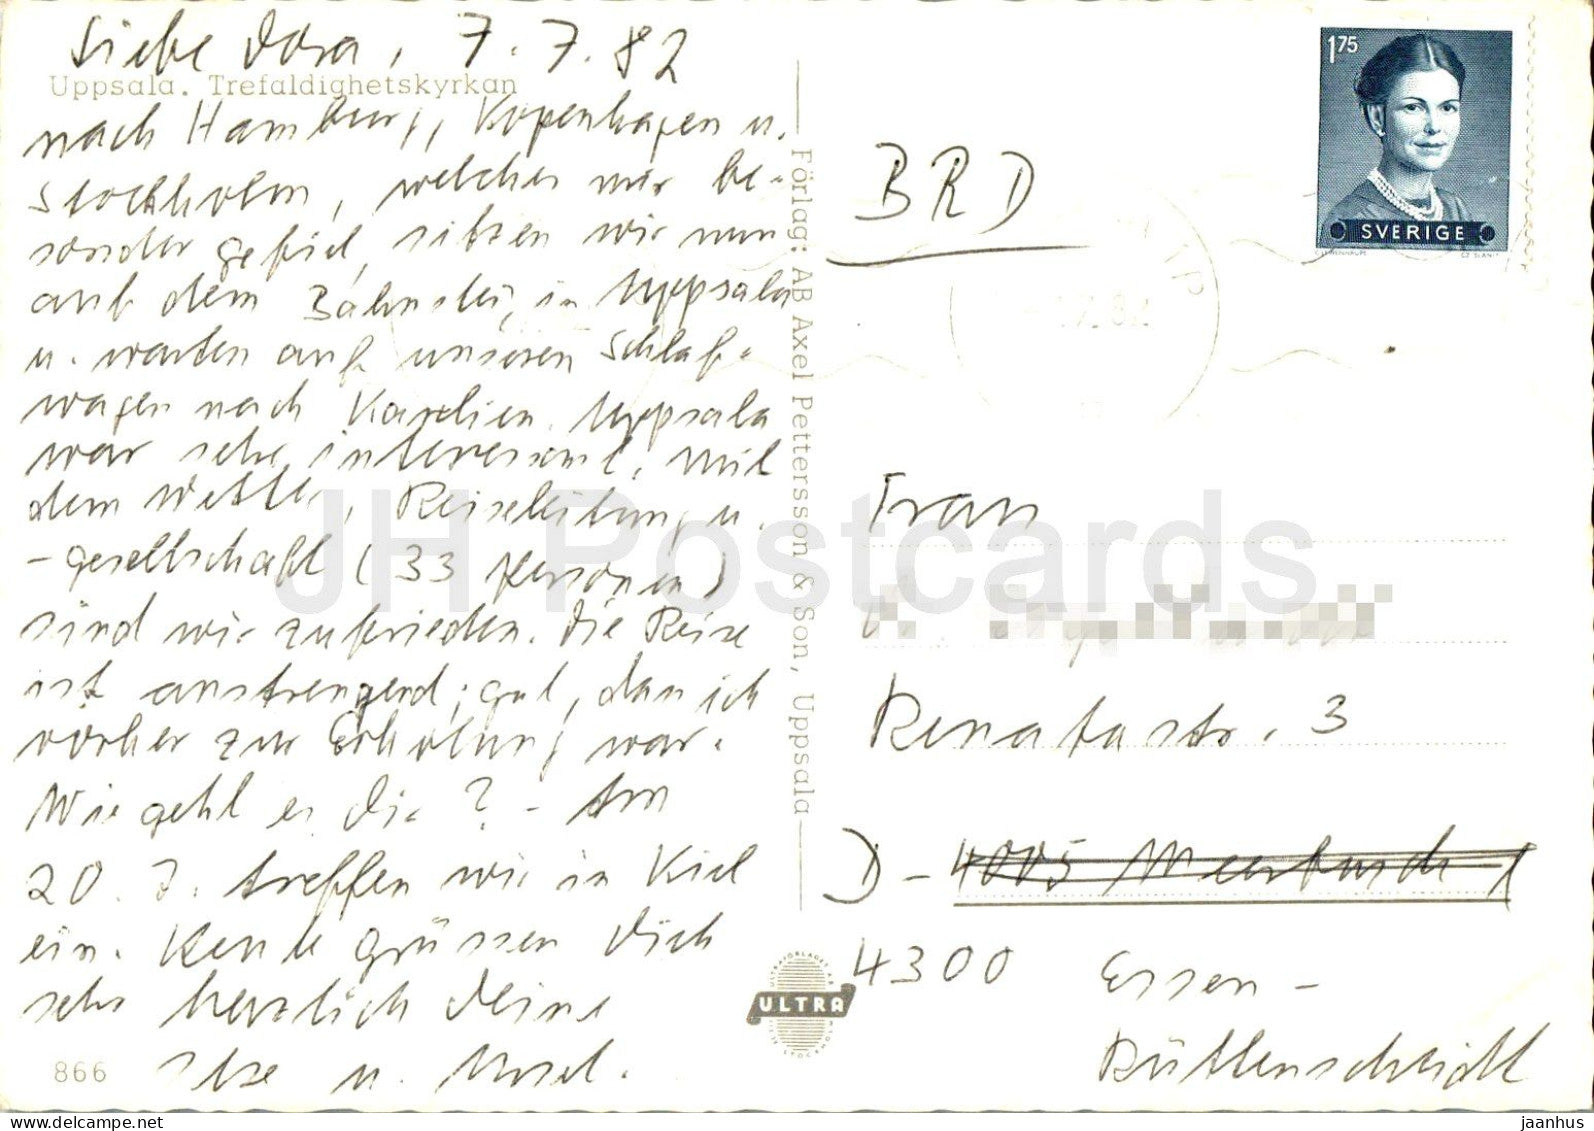 Liebe Dora, 7.7.82
Uppsala. Trefaldighetskyrkan
nach Hamburg, Kopenhagen u.
Stockholm, welches mir be-
sonder gefiel, sitzen wir nun
auf dem Bahnstei, in Uppsala
u. warten auf unseren Schlaf-
wagen nach Karelien. Uppsala
war sehr interessant. Mit
dem Wetter, Reiseleitung u.
-gesellschaft (33 Personen)
sind wir zufrieden. Die Reise
ist anstrengend; gut, dass ich
vorher zur Erholung war.
Wie geht es Dir? - Am
20. 7. treffen wir in Kiel
ein. Heute grüssen Dich
sehr herzlich Deine
Ilse u.
866
Förlag: AB Axel Pettersson & Son, Uppsala
ULTRA
BRD
1 75
SVERIGE
CZ SLANIA
Frau
Renatastr. 3
D - 4005 Meerbusch 1
4300 Essen -
Rüttenscheidt
JH Postcards
jaanhus @ delcampe.net